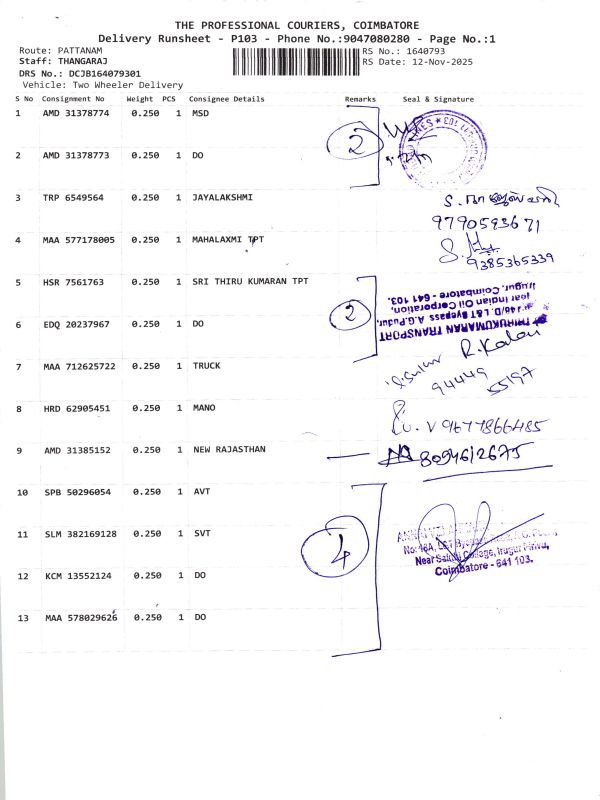 THE PROFESSIONAL COURIERS, COIMBATORE
Delivery Runsheet - P103 - Phone No.:9047080280 - Page No.:1
Route: PATTANAM RS No.: 1640793
Staff: THANGARAJ RS Date: 12-Nov-2025
DRS No.: DCJB164079301
Vehicle: Two Wheeler Delivery
S No Consignment No Weight PCS Consignee Details Remarks Seal & Signature
1 AMD 31378774 0.250 1 MSD
2
2 AMD 31378773 0.250 1 DO
3 TRP 6549564 0.250 1 JAYALAKSHMI
9790593671
4 MAA 577178005 0.250 1 MAHALAXMI TPT
9385365339
5 HSR 7561763 0.250 1 SRI THIRU KUMARAN TPT
2
THIRUKUMARAN TRANSPORT
L&T Bypass A.G.Pudur,
Near Indian Oil Corporation,
Irugur, Coimbatore - 641 103.
6 EDQ 20237967 0.250 1 DO
R. Kalai
7 MAA 712625722 0.250 1 TRUCK
94449
55197
8 HRD 62905451 0.250 1 MANO
V 9677866485
9 AMD 31385152 0.250 1 NEW RAJASTHAN
8094612675
10 SPB 50296054 0.250 1 AVT
11 SLM 382169128 0.250 1 SVT
4
No: L&T
Near College, Irugur
Coimbatore - 641 103.
12 KCM 13552124 0.250 1 DO
13 MAA 578029626 0.250 1 DO